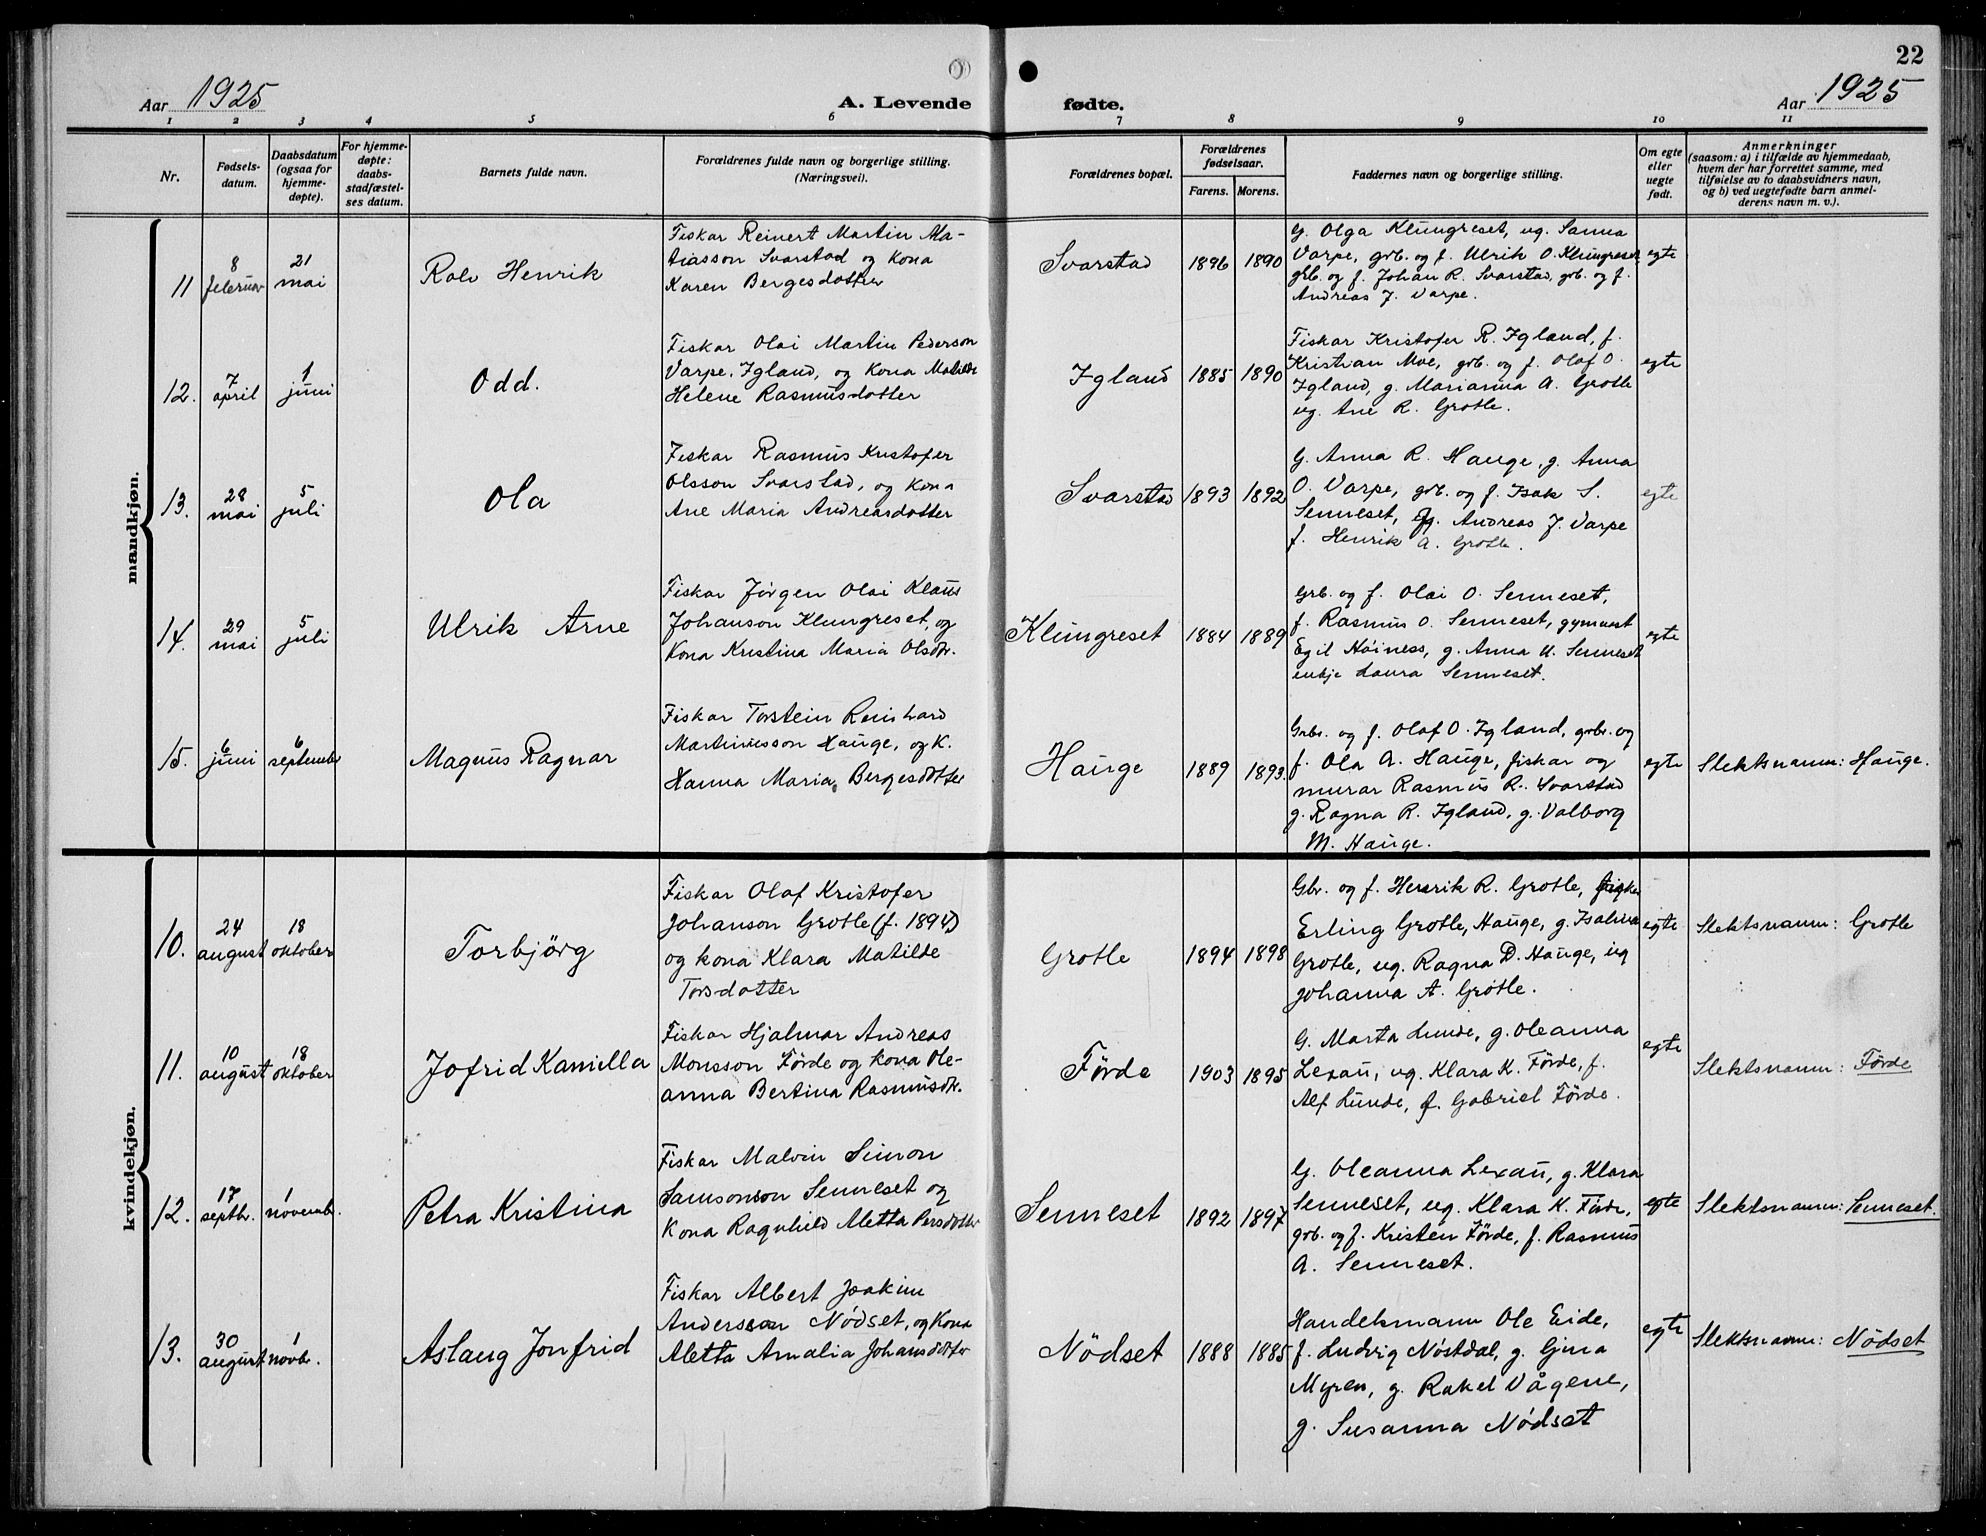 22
Aar 1925
A. Levende fødte.
Aar 1925
1 2 3 4 5 6 7 8 9 10 11
Nr.
Fødsels-
datum.
Daabsdatum
(ogsaa for
hjemme-
døpte).
For hjemme-
døpte:
daabs-
stadfæstel-
ses datum.
Barnets fulde navn.
Forældrenes fulde navn og borgerlige stilling.
(Næringsvei).
Forældrenes bopæl.
Forældrenes
fødselsaar.
Farens. Morens.
Faddernes navn og borgerlige stilling.
Om egte
eller
uegte
født.
Anmerkninger
(saasom: a) i tilfælde av hjemmedaab,
hvem der har forrettet samme, med
tilføielse av to daabsvidners navn,
og b) ved uegtefødte barn anmel-
derens navn m. v.).
mandkjøn.
11
8
februar
21
mai
Rolv Henrik
Fiskar Reinert Martin Ma-
tiasson Svarstad og kona
Karen Bergesdotter
Svarstad
1896
1890
G. Olga Klungreset, ug. Sanna
Varpe, grb. og f. Ulrik O. Klungreset
grb. og f. Johan R. Svarstad, grb. og f.
Andreas J. Varpe.
egte
12.
7
april
1
juni
Odd.
Fiskar Olai Martin Pederson
Varpe, Igland, og kona Matilde
Helene Rasmusdotter
Igland
1885
1890
Fiskar Kristofer R. Igland, f.
Kristian Moe, grb. og f. Olaf O.
Igland, g. Marianna A. Grotle
ug. Ane R. Grotle.
egte
13.
28
mai
5
juli
Ola
Fiskar Rasmus Kristofer
Olsson Svarstad, og kona
Ane Maria Andreasdotter
Svarstad
1893
1892
G. Anna R. Hauge, g. Anna
O. Varpe, grb. og f. Isak S.
Senneset, Andreas J. Varpe
f. Henrik A. Grotle.
egte
14.
29
mai
5
juli
Ulrik Arne
Fiskar Jørgen Olai Klaus
Johanson Klungreset, og
kona Kristina Maria Olsdtr.
Klungreset
1884
1889
Grb. og f. Olai O. Senneset,
f. Rasmus O. Senneset, gymnast
Egil Høiness, g. Anna U. Senneset
enkje Laura Senneset.
egte
15.
6
juni
6
september
Magnus Ragnar
Fiskar Torstein Reinhard
Martinusson Hauge, og k.
Hanna Maria Bergesdotter
Hauge
1889
1893.
Grbr. og f. Olaf O. Igland, grbr. og
f. Ola A. Hauge, fiskar og
murar Rasmus R. Svarstad
g. Ragna R. Igland, g. Valborg
M. Hauge.
egte
Slektsnamn: Hauge.
kvindekjøn.
10.
24
august
18
oktober
Torbjörg
Fiskar Olaf Kristofer
Johanson Grotle (f. 1894)
og kona Klara Matilde
Torsdotter
Grotle
1894
1898
Gbr. og f. Henrik R. Grotle,
Erling Grotle, Hauge, g. Isalina
Grotle, ug. Ragna D. Hauge, ug
Johanna A. Grotle.
egte
Slektsnamn: Grotle
11.
10
august
18
oktober
Jofrid Kamilla
Fiskar Hjalmar Andreas
Monsson Förde og kona Ole-
anna Bertina Rasmusdtr.
Förde
1903
1895
G. Marta Lunde, g. Oleanna
Lexau, ug. Klara K. Förde, f.
Alf Lunde, f. Gabriel Förde.
egte
Slektsnamn: Förde
12.
17
septbr.
1
novemb.
Petra Kristina
Fiskar Malvin Simon
Samsonson Senneset og
kona Ragnhild Aletta Persdotter
Senneset
1892
1897
G. Oleanna Lexau, g. Klara
Senneset, ug. Klara K. Förde,
grb. og f. Kristen Förde, f. Rasmus
A. Senneset.
egte
Slektsnamn: Senneset.
13.
30
august
1
novbr.
Aslaug Jonfrid
Fiskar Albert Joakim
Andersson Nödset, og kona
Aletta Amalia Johansdotter
Nödset
1888
1885
Handelsmann Ole Eide,
f. Ludvig Nøstdal, g. Gina
Myren, g. Rakel Vågene,
g. Susanna Nödset
egte
Slektsnamn: Nödset